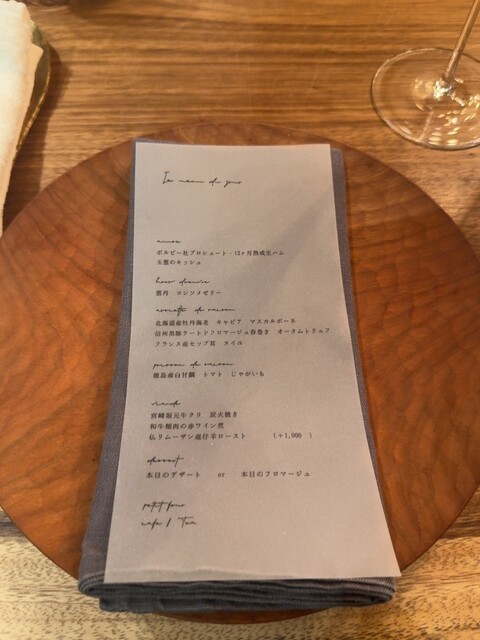 Le menu du jour
amuse
ボルピー社プロシュート・12ヶ月熟成生ハム
玉葱のキッシュ
hors d'œuvre
雲丹　コンソメゼリー
assiette de saison
北海道産牡丹海老　キャビア　マスカルポーネ
信州黒豚テートドフロマージュ春巻き　オータムトリュフ
フランス産セップ茸　エイル
poisson de saison
徳島産白甘鯛　トマト　じゃがいも
viande
宮崎 元牛クリ　炭火焼き
和牛頬肉の赤ワイン煮
仏リムーザン産仔羊ロースト　（+1,000　）
dessert
本日のデザート　or　本日のフロマージュ
petit four
cafe / Tea